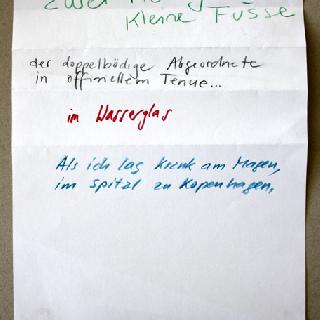 Kleine Füsse
der doppelbödige Abgeordnete
in offiziellem Tenue...
im Wasserglas
Als ich lag krank am Magen,
im Spital zu Kopenhagen,